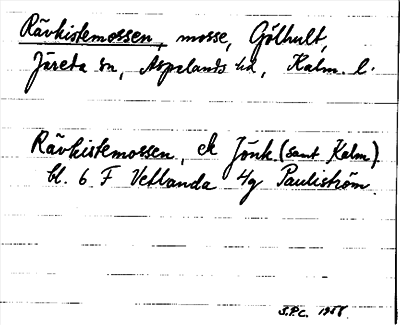 Rävkistemossen, mosse, Gölhult,
Järeda sn, Aspelands hd, Kalm. l.
Rävkistemossen, ek Jönk (samt Kalm)
bl. 6 F Vetlanda 4g Pauliström
S.P.C. 1958